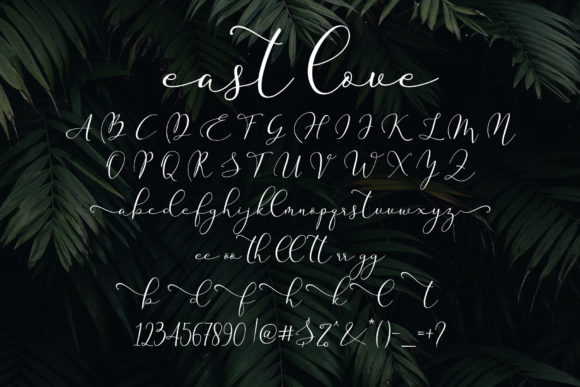 east love
A B C D E F G H I J K L M N
O P Q R S T U V W X Y Z
abcdefghijklmnopqrstuvwxyz
ee oo th ll tt rr gg
b d f h k l t
1234567890 !@#$%^&*()-_=+?